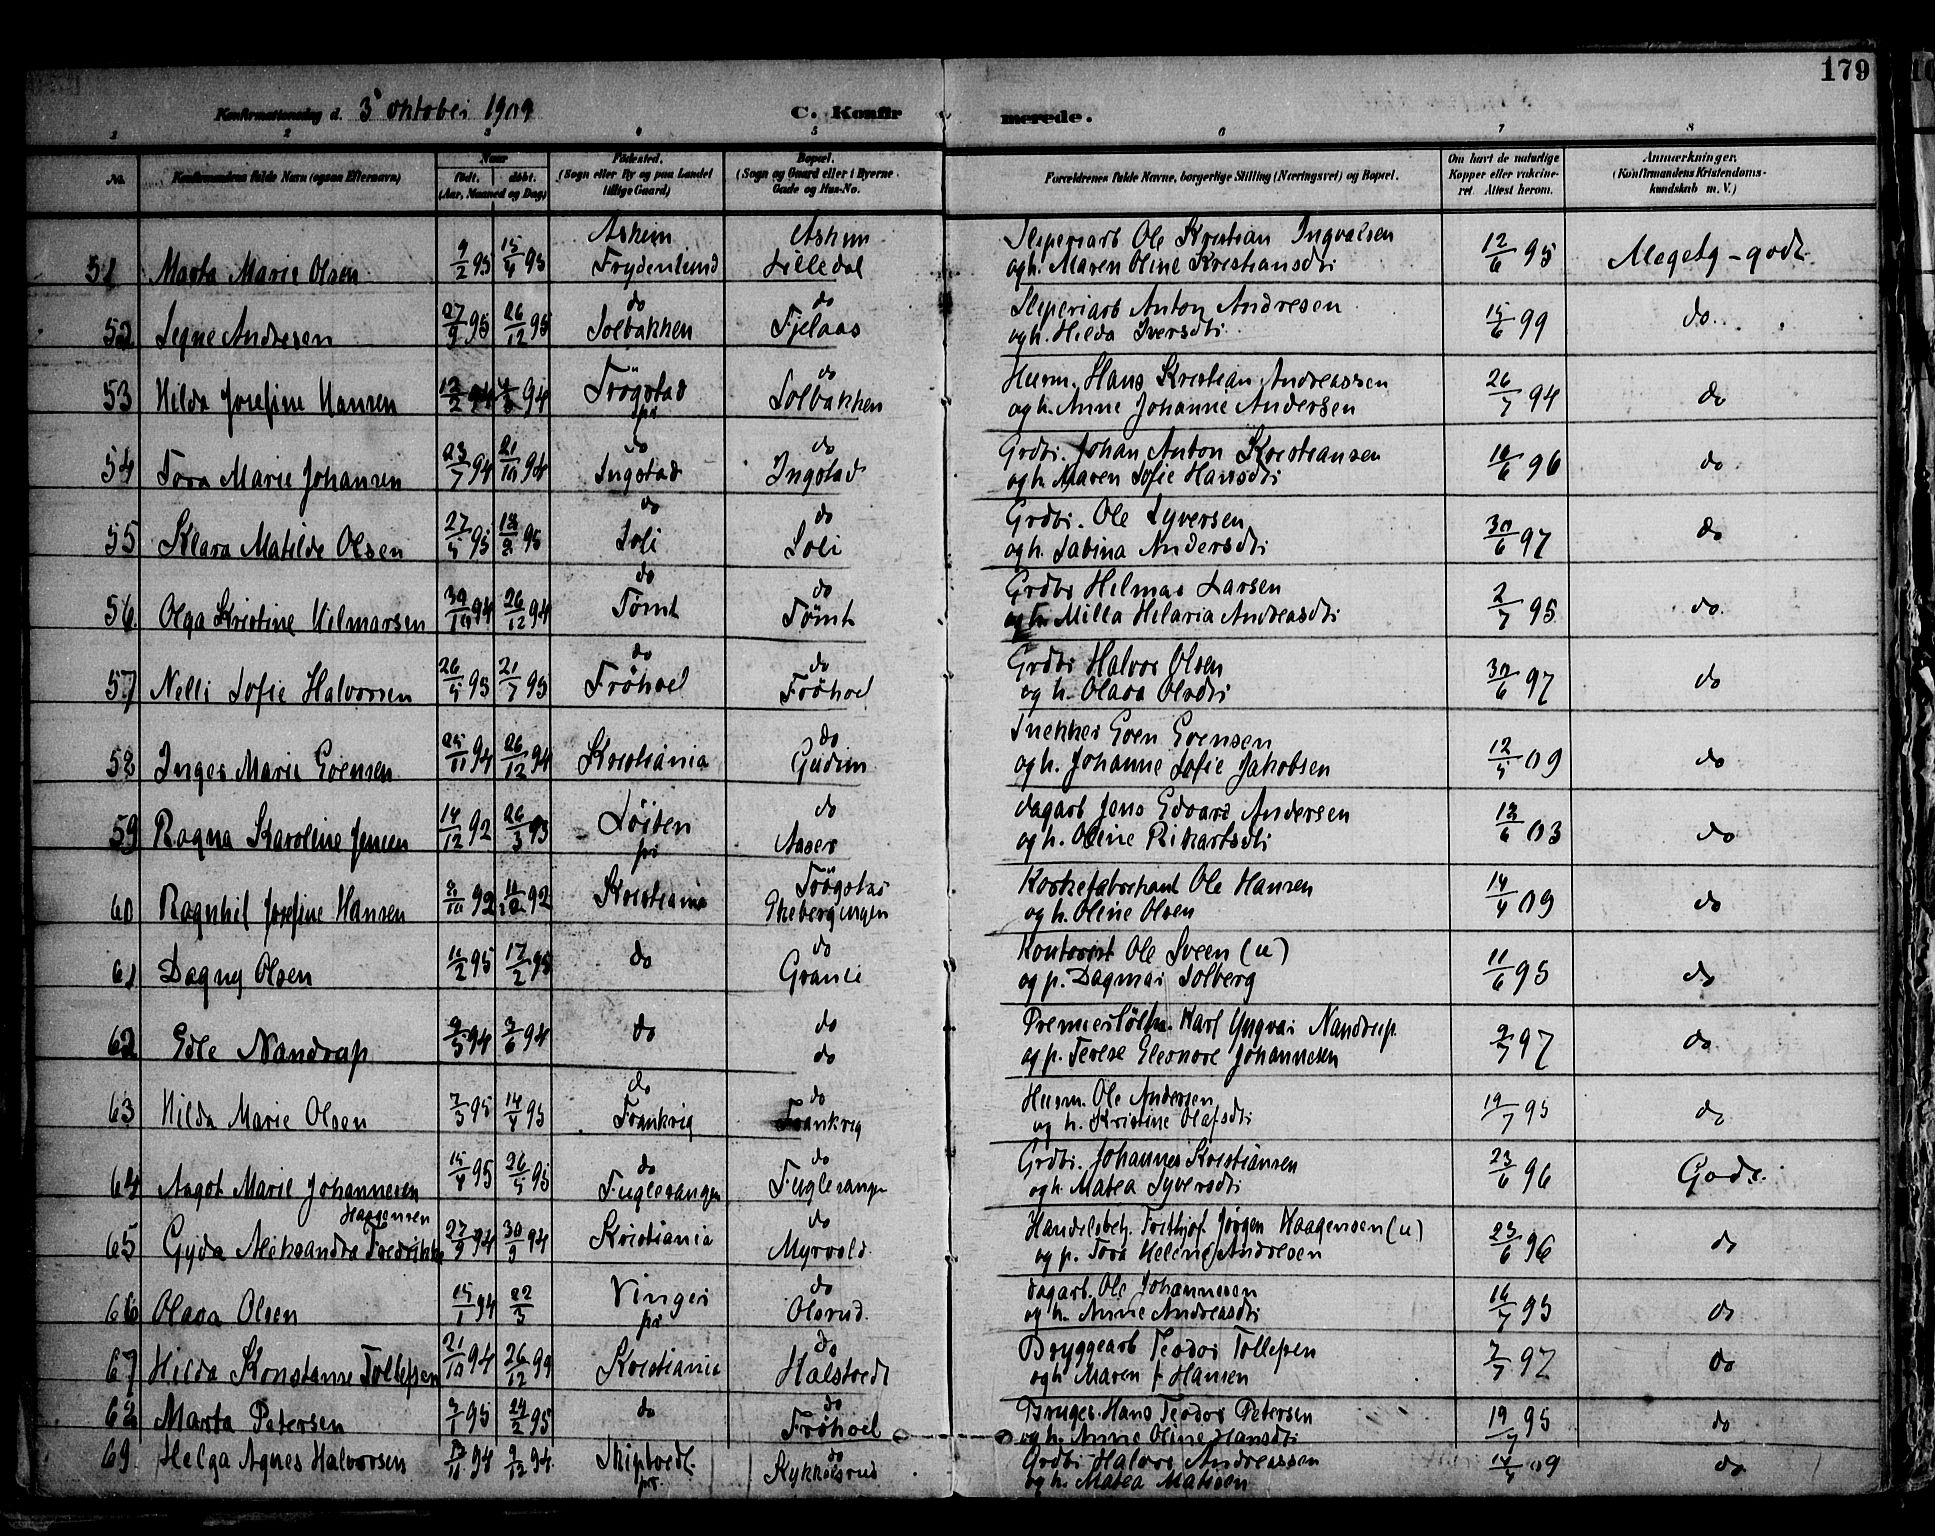 179
Konfirmationsdag d. 3 oktober 1909
C. Konfirmerede.
1 2 3 4 5 6 7 8
No. Konfirmandens fulde Navn (ogsaa Efternavn) Naar født. døbt. (Aar, Maaned og Dag) Fødested. (Sogn eller By og paa Landet tillige Gaard) Bopæl. (Sogn og Gaard eller i Byerne Gade og Hus-No. Forældrenes fulde Navne, borgerlige Stilling (Næringsvei) og Bopæl. Om havt de naturlige Kopper eller vakcineret. Attest herom. Anmærkninger. (Konfirmandens Kristendomskundskab m. V.)
51 Marta Marie Olsen 9/2 95 15/4 95 Askim Frydenlund Askim Lilledal Sliperiarb Ole Kristian Ingvalsen og h. Maren Oline Kristiansdtr 12/6 95 Megetg-godt
52 Signe Andresen 27/9 95 26/12 95 do Solbakken do Fjelaas Sliperiarb Anton Andresen og h. Hilda Iversdtr. 15/6 99 do.
53 Hilda Josefine Hansen 94 Trøgstad pr do Solbakken Husm. Hans Kristian Andreassen og h. Anne Johanne Andersen 26/7 94 do
54 Tora Marie Johansen 23/7 94 21/10 94 do Ingstad do Ingstad Grdbr. Johan Anton Kristiansen og h. Maren Sofie Hansdtr 96 do
55 Klara Matilde Olsen 95 95 do Soli do Soli Grdbr. Ole Syversen og h. Sabina Andersdtr 30/6 97 do
56 Olga Kristine Hilmarsen 30/10 94 26/12 94 do Tømt do Tømt Grdbr Hilmar Larsen og h. Milla Hilaria Andreasdtr 2/7 95 do.
57 Nelli Sofie Halvorsen 26/5 95 21/7 95 do Frøhoel do Frøhoel Grdbr Halvor Olsen og h. Olava Olsdtr 30/6 97 do
58 Inger Marie Evensen 25/11 94 26/12 94 Kristiania do Gudim Snekker Even Evensen og h. Johanne Sofie Jakobsen 12/5 09 do
59 Ragna Karoline Jensen 14/12 92 26/3 93 Løiten pr do Aaser dagarb Jens Edvard Andersen og h. Oline Rikartsdtr 13/6 03 do
60 Ragnhil Josefine Hansen 92 92 Kristiania Trøgstad Korkefabrikant Ole Hansen og h. Oline Olsen 14/4 09 do
61 Dagny Olsen 95 17/2 95 do do Granli Kontorist Ole Sveen (u) og p. Dagmar Solberg 11/6 95 do
62 Edle Nandrup 94 3/6 94 do do do Premierløitn. Karl Yngvar Nandrup. og p. Terese Eleonore Johannesen 97 do
63 Hilda Marie Olsen 7/3 95 14/4 95 do Frankrig do Frankrig Husm. Ole Andersen og h. Kristine Olafsdtr 19/7 95 do
64 Aagot Marie Johannesen 15/4 95 26/5 95 do Fuglesangen do Fuglesangen Grdbr. Johannes Kristiansen og h. Matea Syversdtr 23/6 96 Godt.
65 Gyda Aleksandra Fredrikke Haagensen 94 30/9 94 Kristiania do Myrvold. Handelsbetj. Fritthjof Jørgen Haagensen (u) og p. Tora Helene Andresen 23/6 96 do
66 Olava Olsen 15/1 94 22/3 Vinger pr do Olsrud. dagarb. Ole Johannesen og h. Anne Andreasdtr 95 do
67 Hilda Konstanse Tollefsen 21/10 94 26/12 99 Kristiania do Halstvedt Bryggearb Teodor Tollefsen og h Maren J Hansen 7/7 97 do
68 Marta Petersen 95 24/2 95 do do Frøhoel Bruger. Hans Teodor Petersen og h. Anne Oline Hansdtr 19/7 95 do
69 Helga Agnes Halvorsen 94 9/12 94 Skiptvedt. pr. do Kykkelsrud Grdbr Halvor Andreassen og h. Matea Matisen 14/4 09 do